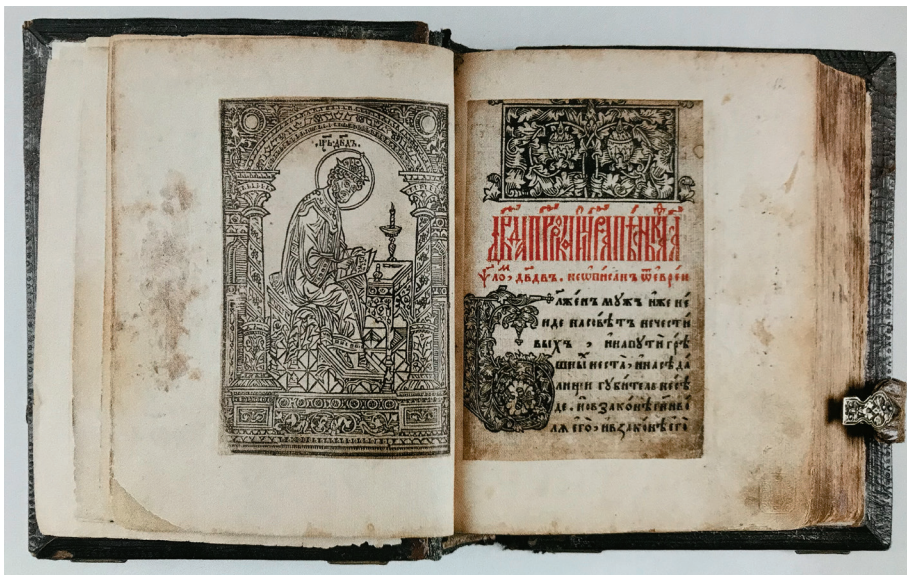 ·цр҃ь·дв҃дъ·
ѱⷧ҇ло, дв҃двъ. не ѡписанъ ѿ еврѣи
Бл҃женъ мужъ иже не
иде насовѣтъ нечести
выхъ, инапути грѣ
шны нестѧ, инасѣда
лищи губитель несѣ
де. новзаконѣ гн҃и во
лѧ его, ивзаконѣ его